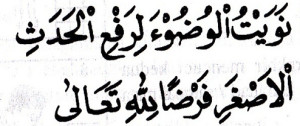 نَوَيْتُ الْوُضُوْءَ لِرَفْعِ الْحَدَثِ
الْاَصْغَرِ فَرْضًا لِلّٰهِ تَعَالٰى